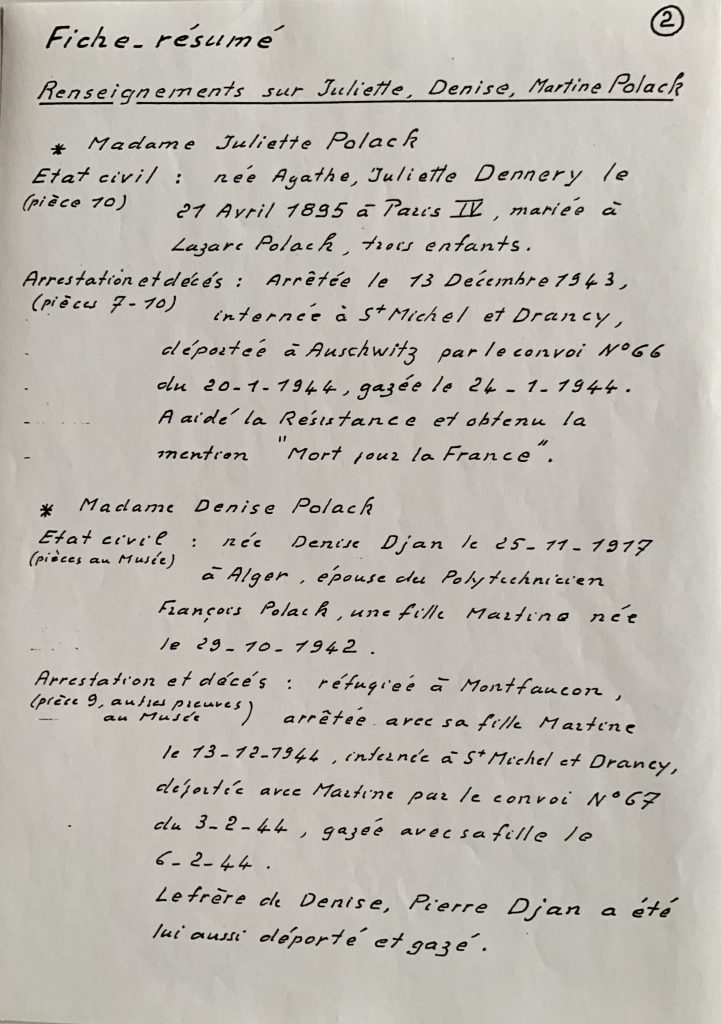 2
Fiche-résumé
Renseignements sur Juliette, Denise, Martine Polack
* Madame Juliette Polack
Etat civil : née Agathe, Juliette Dennery le
(pièce 10) 21 Avril 1895 à Paris IV, mariée à
Lazare Polack, trois enfants.
Arrestation et décés : Arrêtée le 13 Décembre 1943,
(pièces 7-10) internée à St Michel et Drancy,
déporteé à Auschwitz par le convoi N°66
du 20-1-1944, gazée le 24-1-1944.
A aidé la Résistance et obtenu la
mention "Mort pour la France".
* Madame Denise Polack
Etat civil : née Denise Djan le 25-11-1917
(pièces au Musée) à Alger, épouse du Polytechnicien
François Polack, une fille Martine née
le 29-10-1942.
Arrestation et décés : réfugieé à Montfaucon,
(pièce 9, autres preuves
au Musée) arrêtée avec sa fille Martine
le 13-12-1944, internée à St Michel et Drancy,
déportée avec Martine par le convoi N°67
du 3-2-44, gazéé avec sa fille le
6-2-44.
Le frère de Denise, Pierre Djan a été
lui aussi déporté et gazé.